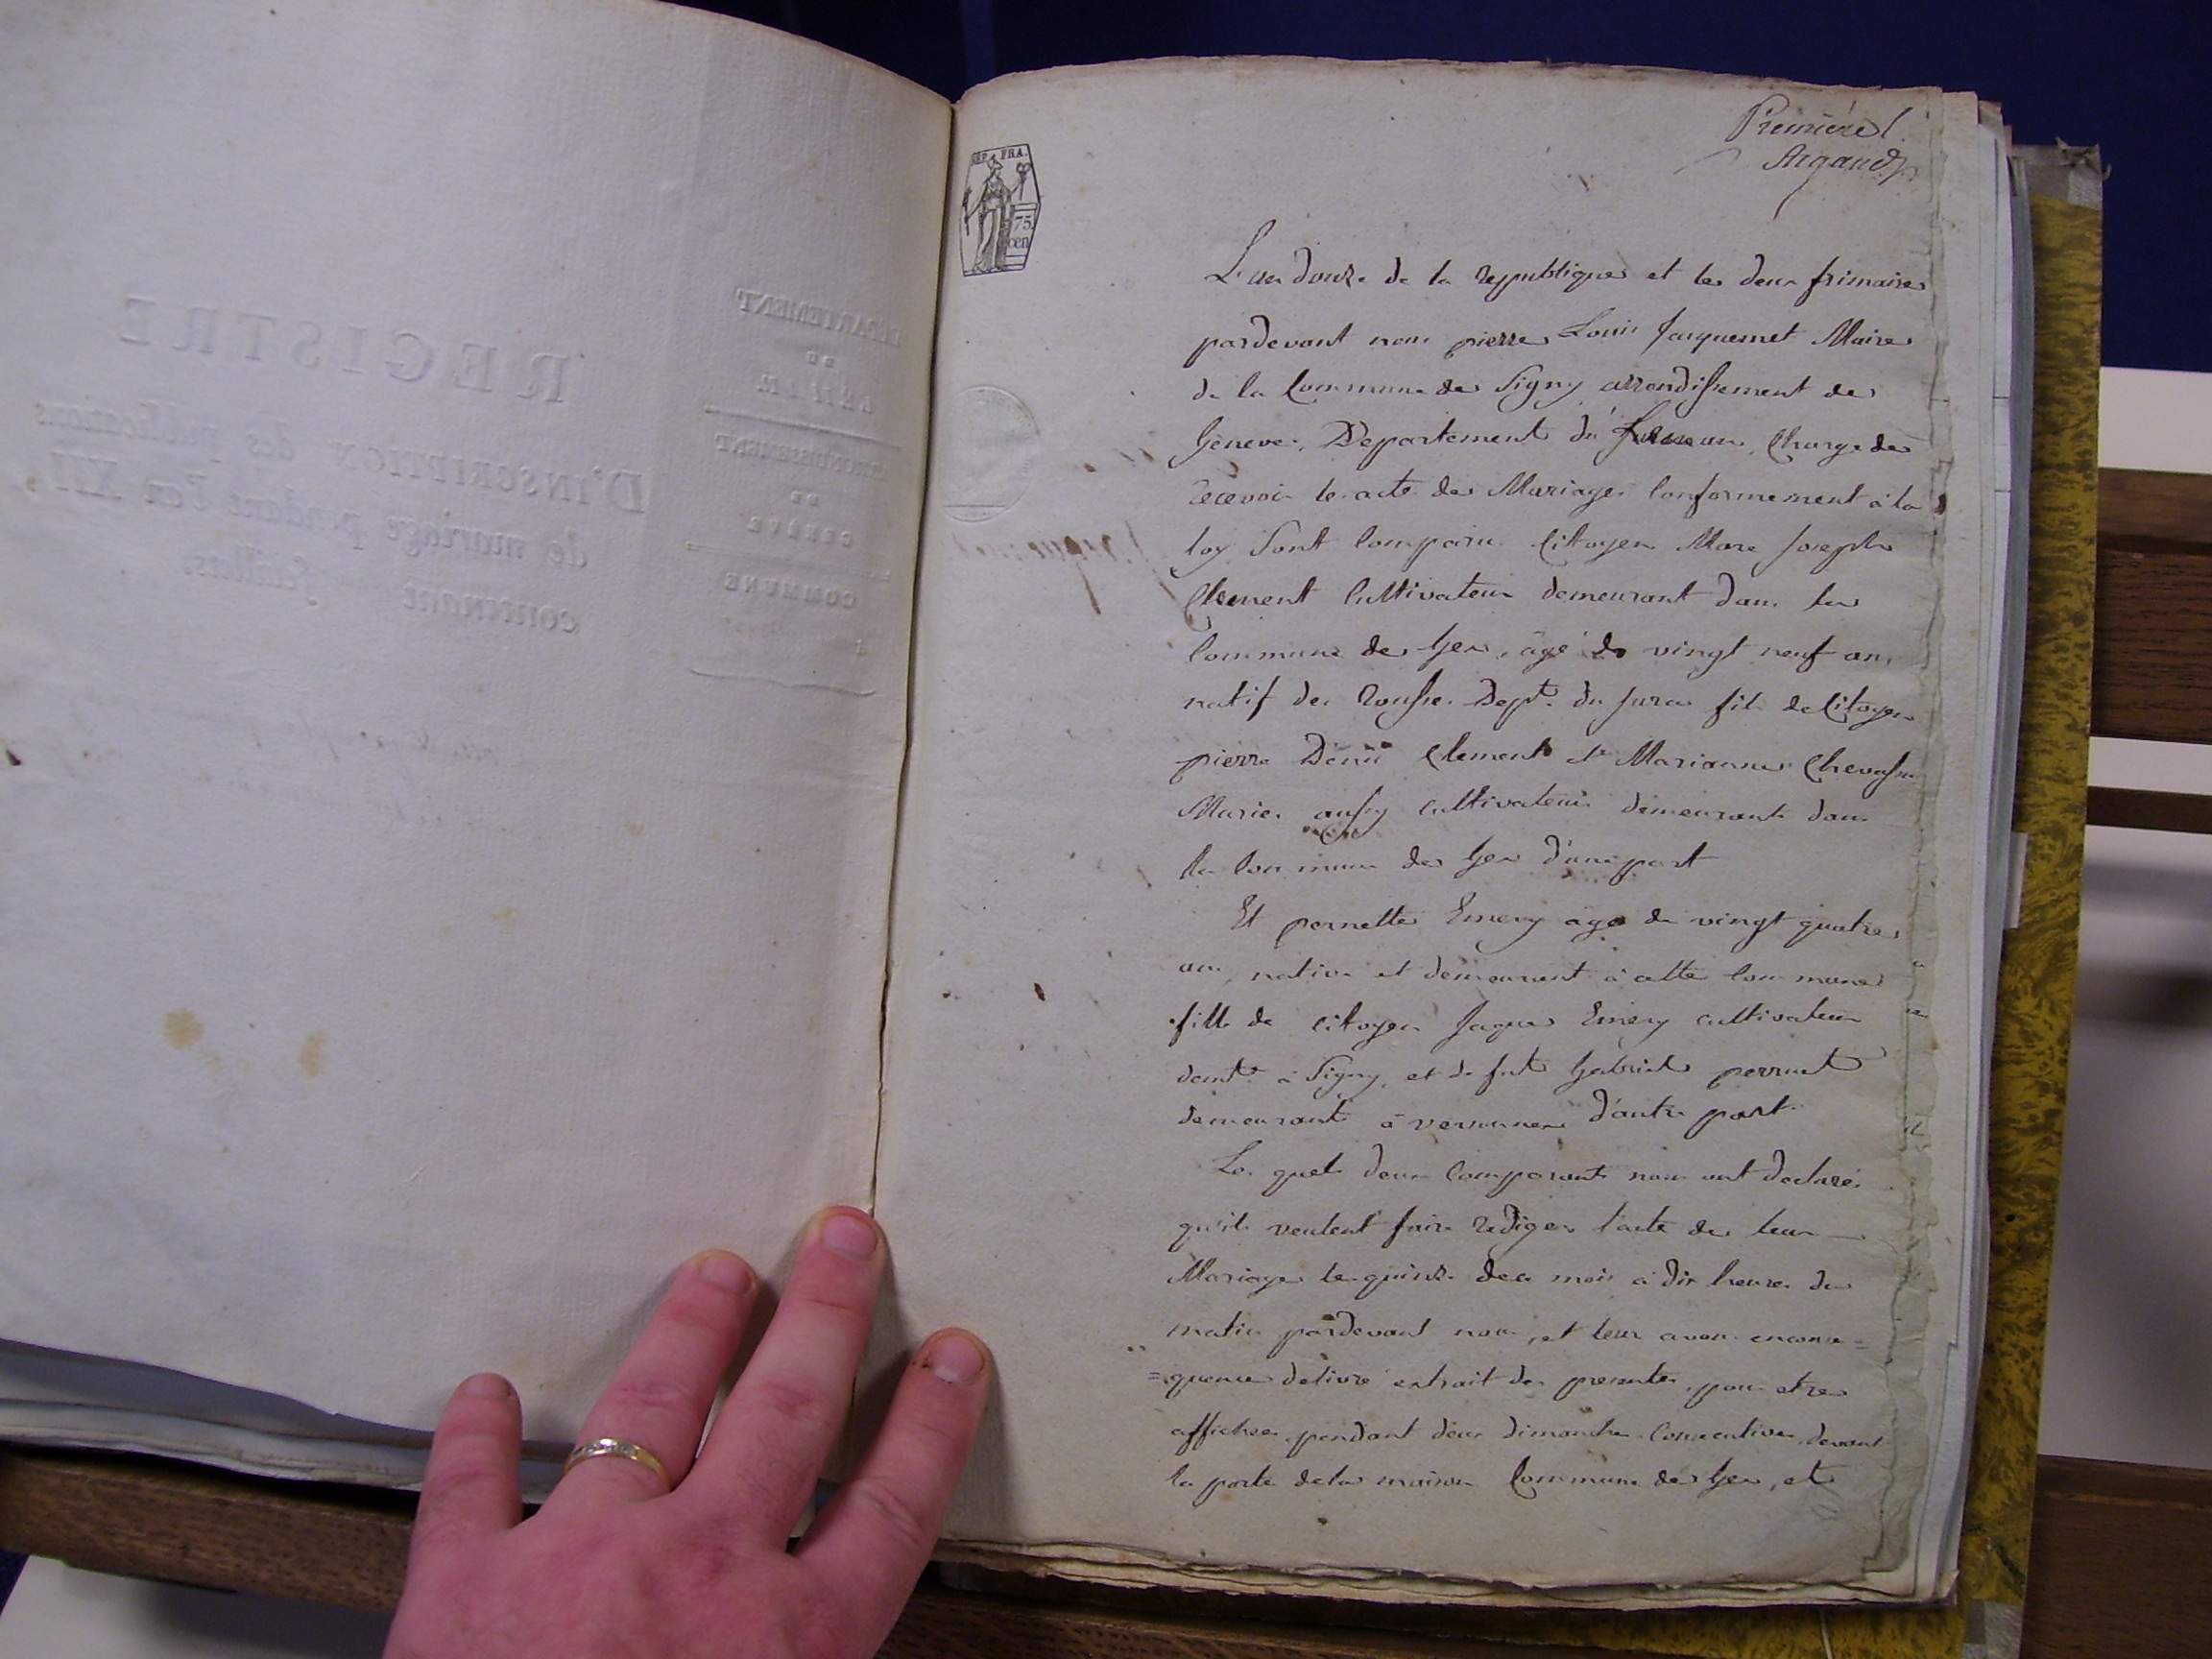 REGISTRE
D'INSCRIPTION des publications
de mariage pendant l'an XII,
contenant feuillets.
DÉPARTEMENT
DU
LÉMAN
ARRONDISSEMENT
DE
GENÈVE
COMMUNE
REP. FRA.
75
cen
Première
Argand
L'an douze de la republique et le deux frimaire
pardevant nous pierre Louis Jacquemet Maire
de la Commune de Signy arrondissement de
Geneve, Departement du Leman, Charge de
recevoir les acte de Mariage Conformement à la
loy Sont Comparu Citoyen Marc Joseph
Clement Cultivateur demeurant dans la
Commune de Gex, agé de vingt neuf ans
natif de Dept. du Jura fils de Citoyen
pierre Denis Clement et Marianne
Mariés aussy cultivateurs demeurant dans
la Commune de Gex d'une part
Et pernette Emery age de vingt quatre
ans native et demeurant à cette Commune
fille de citoyen Jaques Emery cultivateur
demt. à Signy, et de fut Gabriele perruet
demeurant à d'autre part
Les quels deux Comparants nous ont declaré
qu'ils veulent faire rediger l'acte de leur
Mariage le quinze de ce mois à dix heures du
matin pardevant nous, et leur avons en conse=
=quence delivré extrait des presentes, pour etre
affichee pendant deux dimanche Consecutives, devant
la porte de la maison Commune de Gex, et